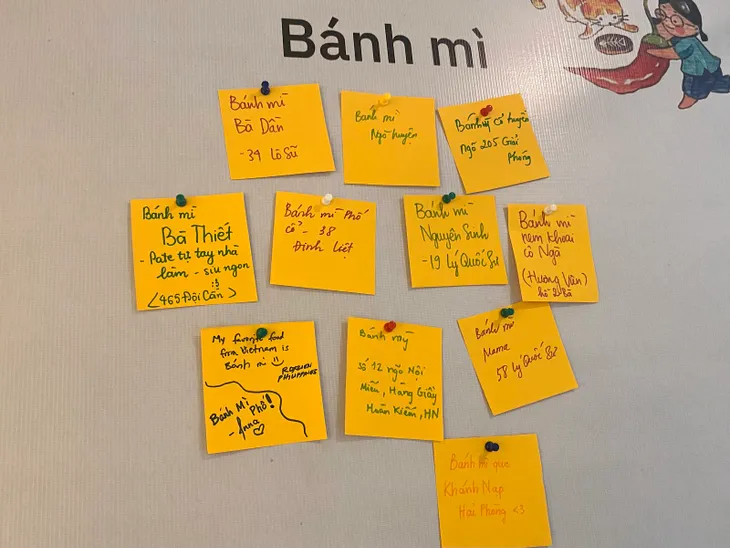 Bánh mì
Bánh mì
Bà Dần
- 34 Lò Sũ
Bánh mì
Ngõ huyện
Bánh mì cổ truyền
Ngõ 205 Giải
Phóng
Bánh mì
Bà Thiết
- Pate tự tay nhà
làm - siu ngon
:3
<465 Đội Cấn>
Bánh mì Phố
cổ - 38
Đinh Liệt
Bánh mì
Nguyên Sinh
- 19 Lý Quốc Sư
Bánh mì
nem khoai
cô Ngã
(Hương Vân)
hồ 2 Bà
My favorite food
from Vietnam is
Bánh mì
PHILIPPINES
Bánh Mì Phố!
- Anna ♡
Bánh mỳ
Số 12 ngõ Nội
Miếu, Hàng Giầy
Hoàn Kiếm, HN
Bánh mì
Mama
58 Lý Quốc Sư
Bánh mì que
Khánh Nạp
Hải Phòng <3